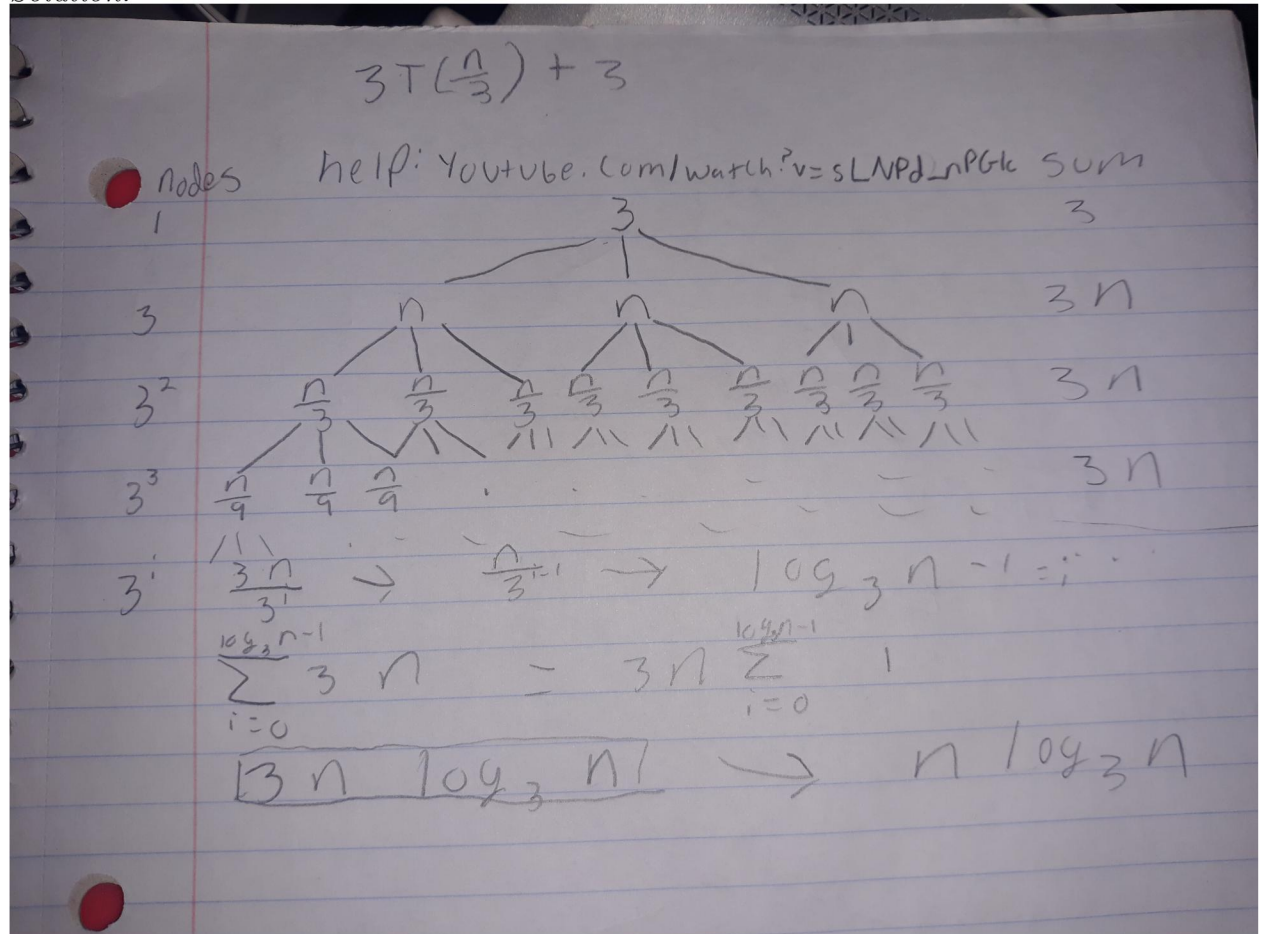 Solution:
3T(n/3) + 3
nodes help: Youtube.com/watch?v=sLNPd_nPGk sum
1 3 3
3 n n n 3n
3² n/3 n/3 n/3 n/3 n/3 n/3 n/3 n/3 n/3 3n
3³ n/9 n/9 n/9 . . . 3n
3^i 3n/3^i → n/3^(i-1) → log₃n-1=i
∑_{i=0}^{log₃n-1} 3n = 3n ∑_{i=0}^{log₃n-1} 1
3n log₃ n → n log₃ n